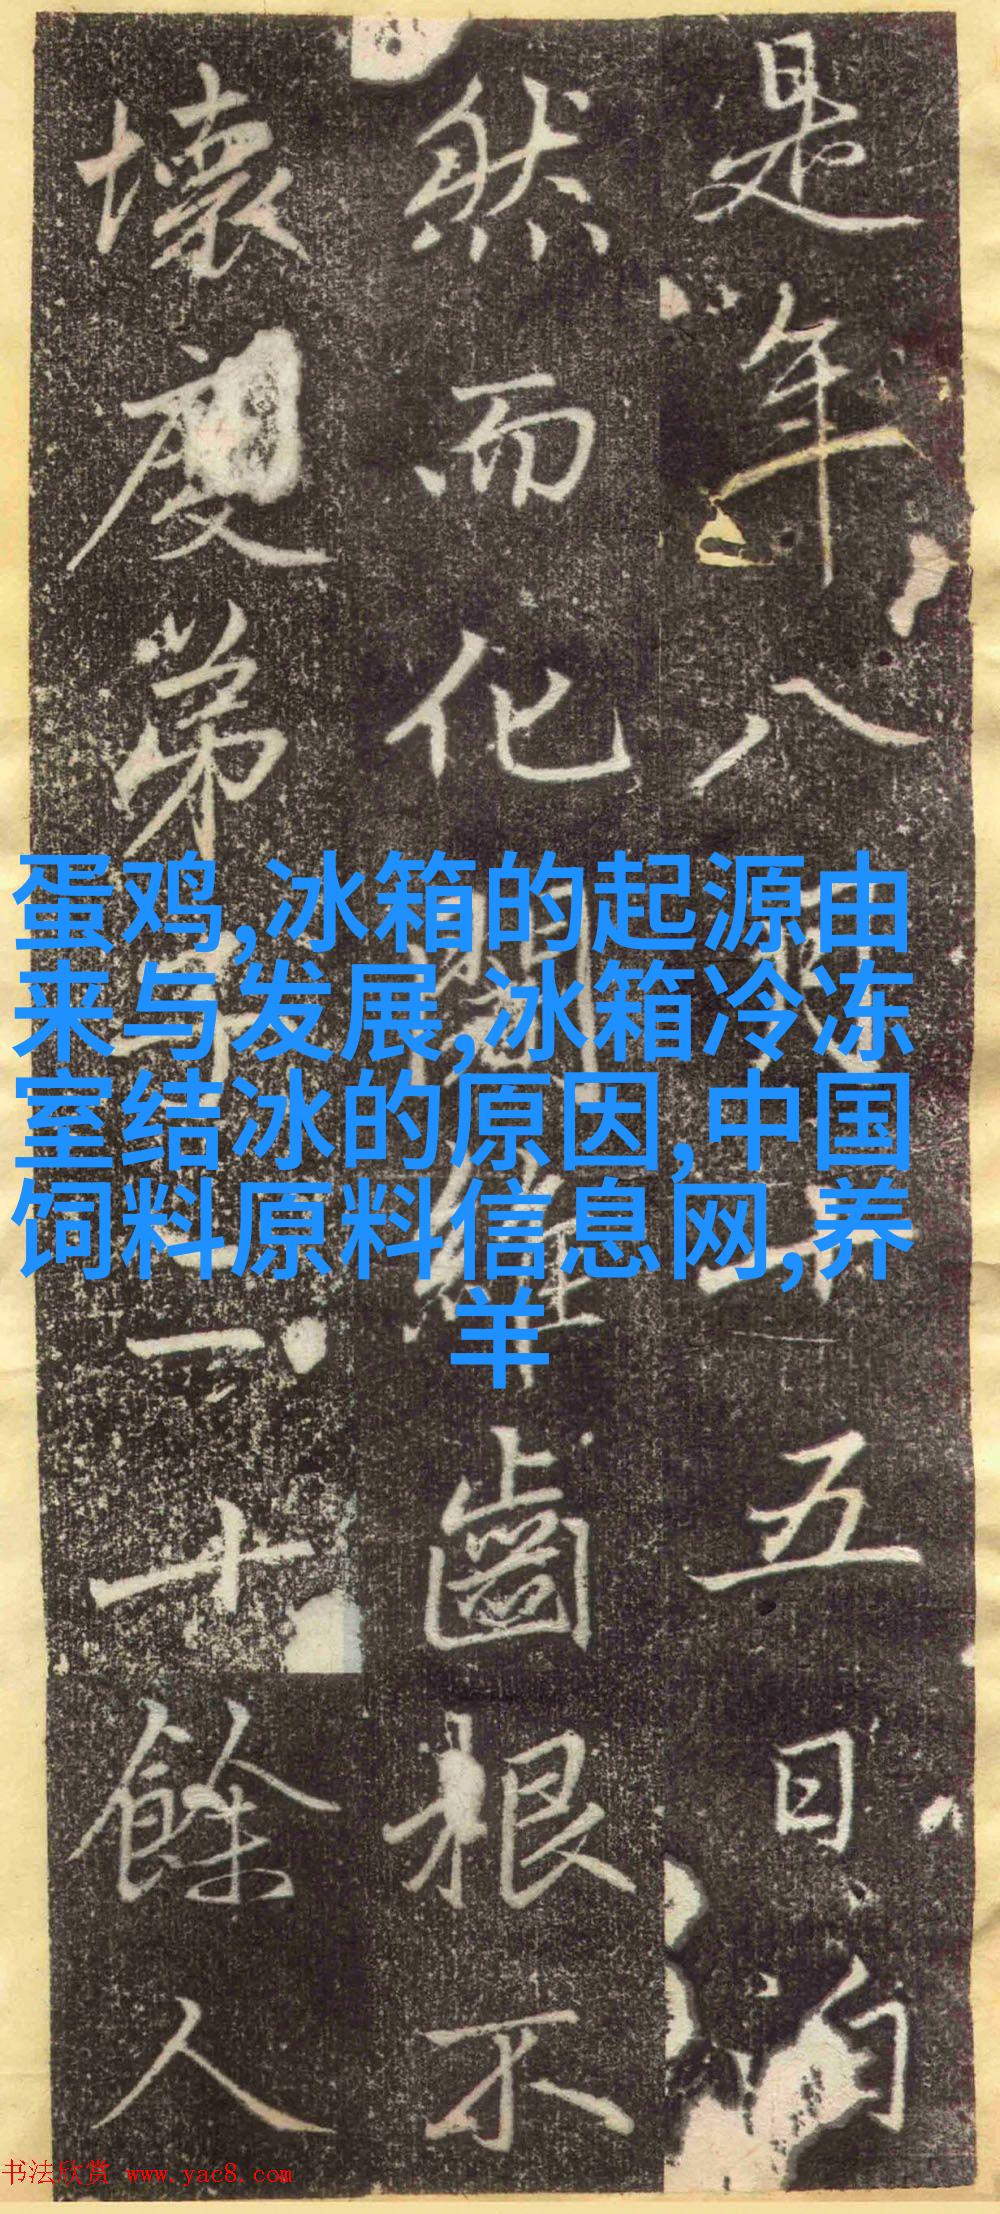 是年八月十五日自
然而化闍維齒根不
壞度弟子二十餘人
蛋鸡,冰箱的起源由
来与发展,冰箱冷冻
室结冰的原因,中国
饲料原料信息网,养
羊
书法欣赏 www.yac8.com